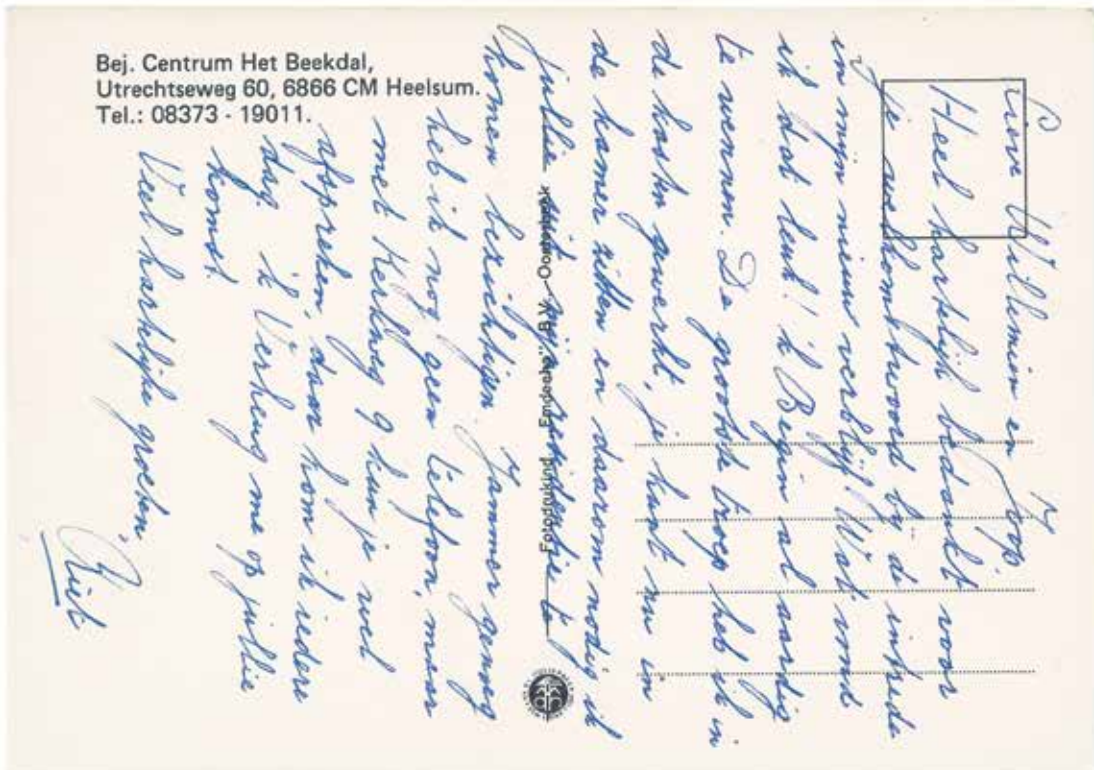 Bej. Centrum Het Beekdal,
Utrechtseweg 60, 6866 CM Heelsum.
Tel.: 08373 - 19011.
Lieve Willemien en Joop,
Heel hartelijk bedankt voor
je welkomstwoord bij de intrede
in mijn nieuw verblijf! Wat vond
ik dat leuk! 'k Begin al aardig
te wennen. De grootste troep heb ik in
de kasten gewerkt, je kunt nu in
de kamer zitten en daarom nodig ik
jullie uit mijn residentie te
komen bezichtigen. Jammer genoeg
heb ik nog geen telefoon, maar
met Kerkweg 9 kun je wel
afspreken, daar kom ik iedere
dag. 'k Verheug me op jullie
komst.
Veel hartelijke groeten,
Riek
Fotodrukind. "Emdeeha" B.V. - Oosterbeek